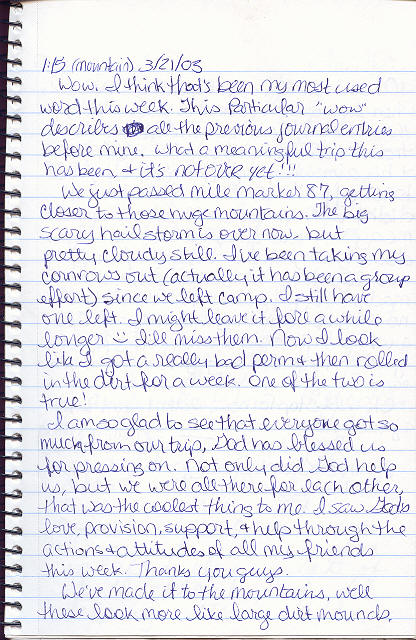 1:15 (mountain) 3/21/03
Wow. I think that's been my most used
word this week. This Particular "wow"
describes all the previous journal entries
before mine. What a meaningful trip this
has been, & it's not over yet!!!
We just passed mile marker 87, getting
closer to those huge mountains. The big
scary hail storm is over now. but
pretty cloudy still. I've been taking my
cornrows out (actually it has been a group
effort) since we left camp. I still have
one left. I might leave it for a while
longer :) I'll miss them. Now I look
like I got a really bad perm & then rolled
in the dirt for a week. One of the two is
true!
I am so glad to see that everyone got so
much from our trip, God has blessed us
for pressing on. Not only did God help
us, but we were all there for each other,
that was the coolest thing to me. I saw God's
love, provision, support, & help through the
actions & attitudes of all my friends
this week. Thanks you guys.
We've made it to the mountains, well
these look more like large dirt mounds.